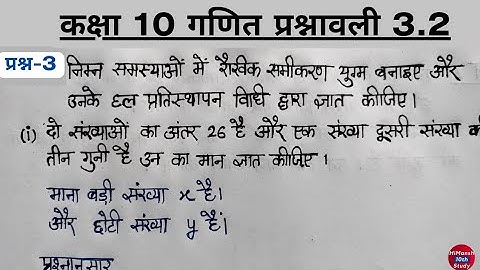 कक्षा 10 गणित प्रश्नावली 3.2
प्रश्न-3
निम्न समस्याओं में रैखिक समीकरण युग्म बनाइए और
उनके हल प्रतिस्थापन विधि द्वारा ज्ञात कीजिए।
(i) दो संख्याओं का अंतर 26 है और एक संख्या दूसरी संख्या की
तीन गुनी है उन का मान ज्ञात कीजिए।
माना बड़ी संख्या x है।
और छोटी संख्या y है।
प्रश्नानुसार
HiMansh
10th
Study